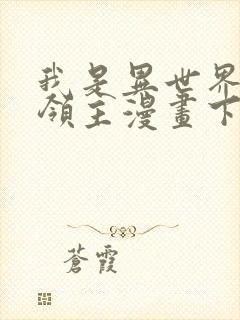 我是異世界
領主漫畫下
蒼霞